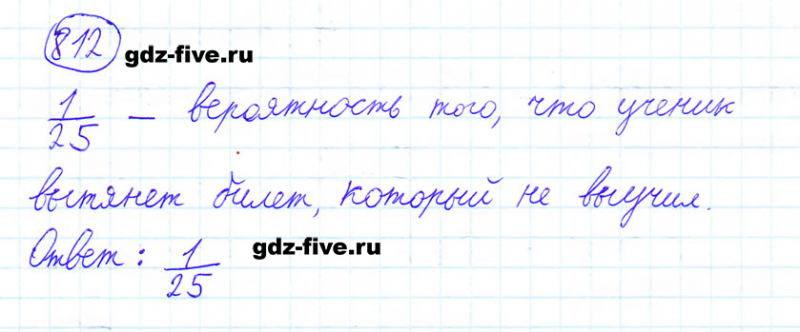 812 gdz-five.ru
1/25 — вероятность того, что ученик
вытянет билет, который не выучил.
Ответ: 1/25 gdz-five.ru